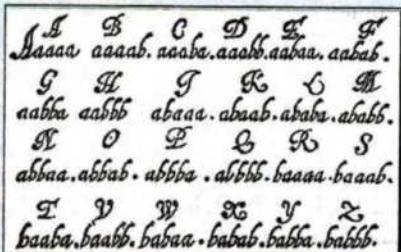 A B C D E F
Aaaaa aaaab. aaaba. aaabb. aabaa. aabab.
G H I K L M
aabba aabbb abaaa. abaab. ababa. ababb.
N O P Q R S
abbaa. abbab. abbba. abbbb. baaaa. baaab.
T V W X Y Z
baaba. baabb. babaa. babab. babba. babbb.